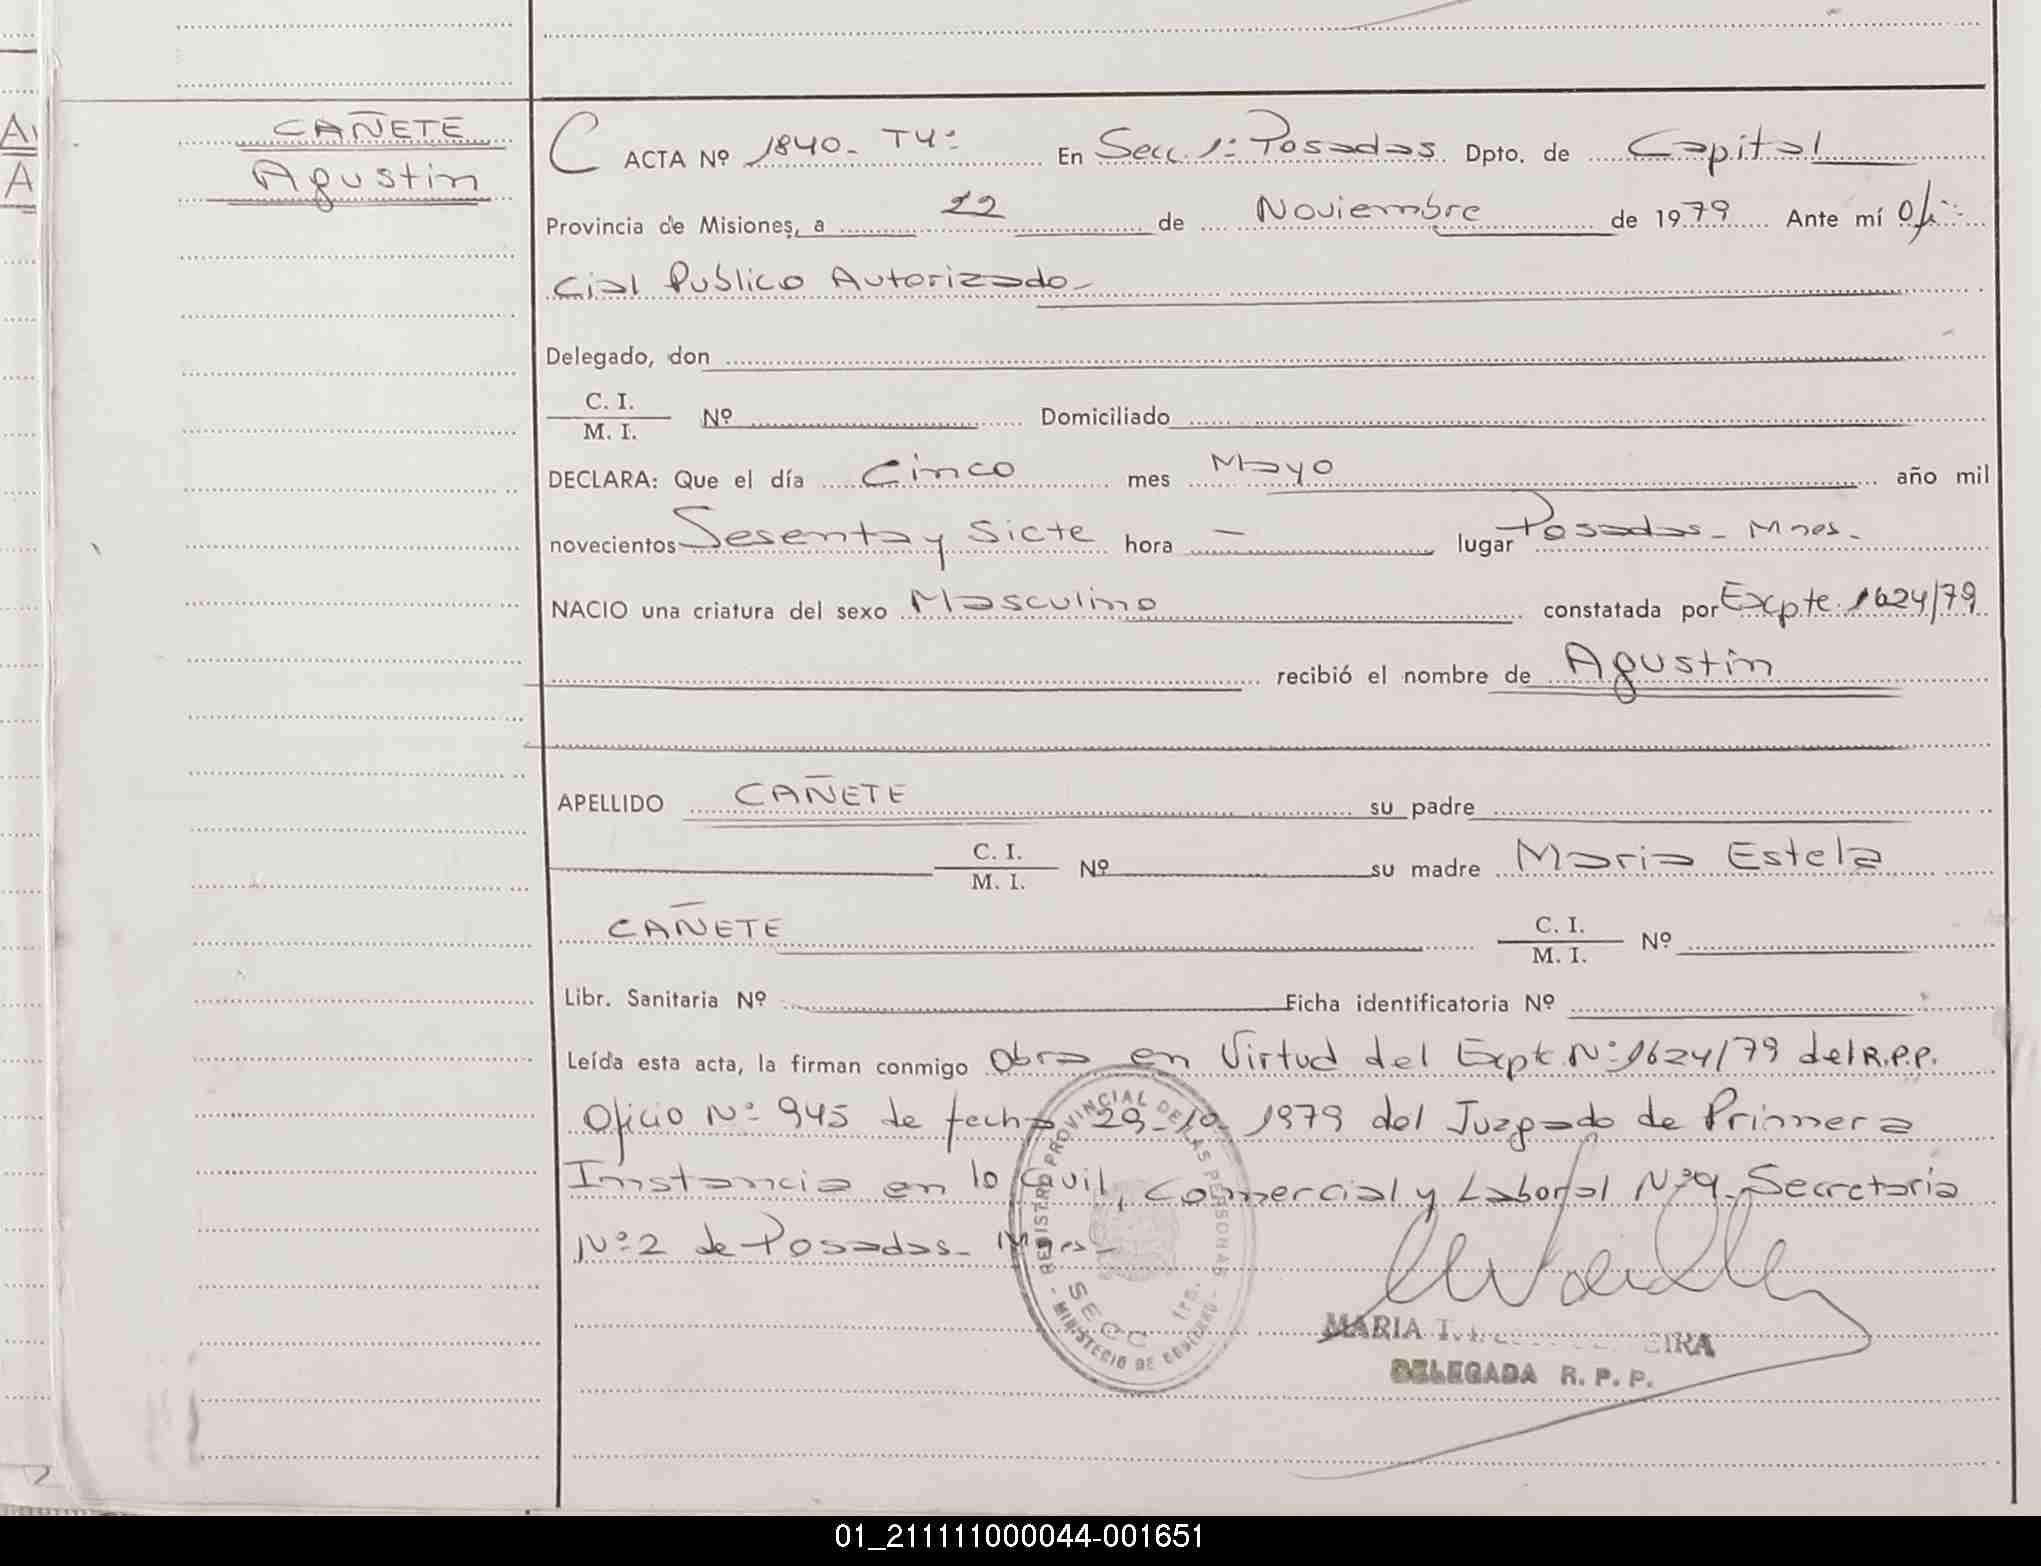 CAÑETE
Agustin
C ACTA Nº 1840- T4º En Secc. 1º Posadas Dpto. de Capital
Provincia de Misiones, a 22 de Noviembre de 1979 Ante mí Ofi-
cial Publico Autorizado-
Delegado, don
C. I.
M. I. Nº Domiciliado
DECLARA: Que el día Cinco mes Mayo año mil
novecientos Sesenta y Siete hora — lugar Posadas- Mnes.
NACIO una criatura del sexo Masculino constatada por Expte. 1624/79
recibió el nombre de Agustin
APELLIDO CAÑETE su padre
C. I.
M. I. Nº su madre Maria Estela
CAÑETE C. I.
M. I. Nº
Libr. Sanitaria Nº Ficha identificatoria Nº
Leída esta acta, la firman conmigo Obra en Virtud del Expte. Nº 1624/79 del R.P.P.
Oficio Nº 945 de fecha 29-10-1979 del Juzgado de Primera
Instancia en lo Civil, Comercial y Laboral Nº 9- Secretaria
Nº 2 de Posadas- Mnes-
REGISTRO PROVINCIAL DE LAS PERSONAS
SECC. 1ra.
- MINISTERIO DE GOBIERNO -
MARIA T.
DELEGADA R. P. P.
01_211111000044-001651